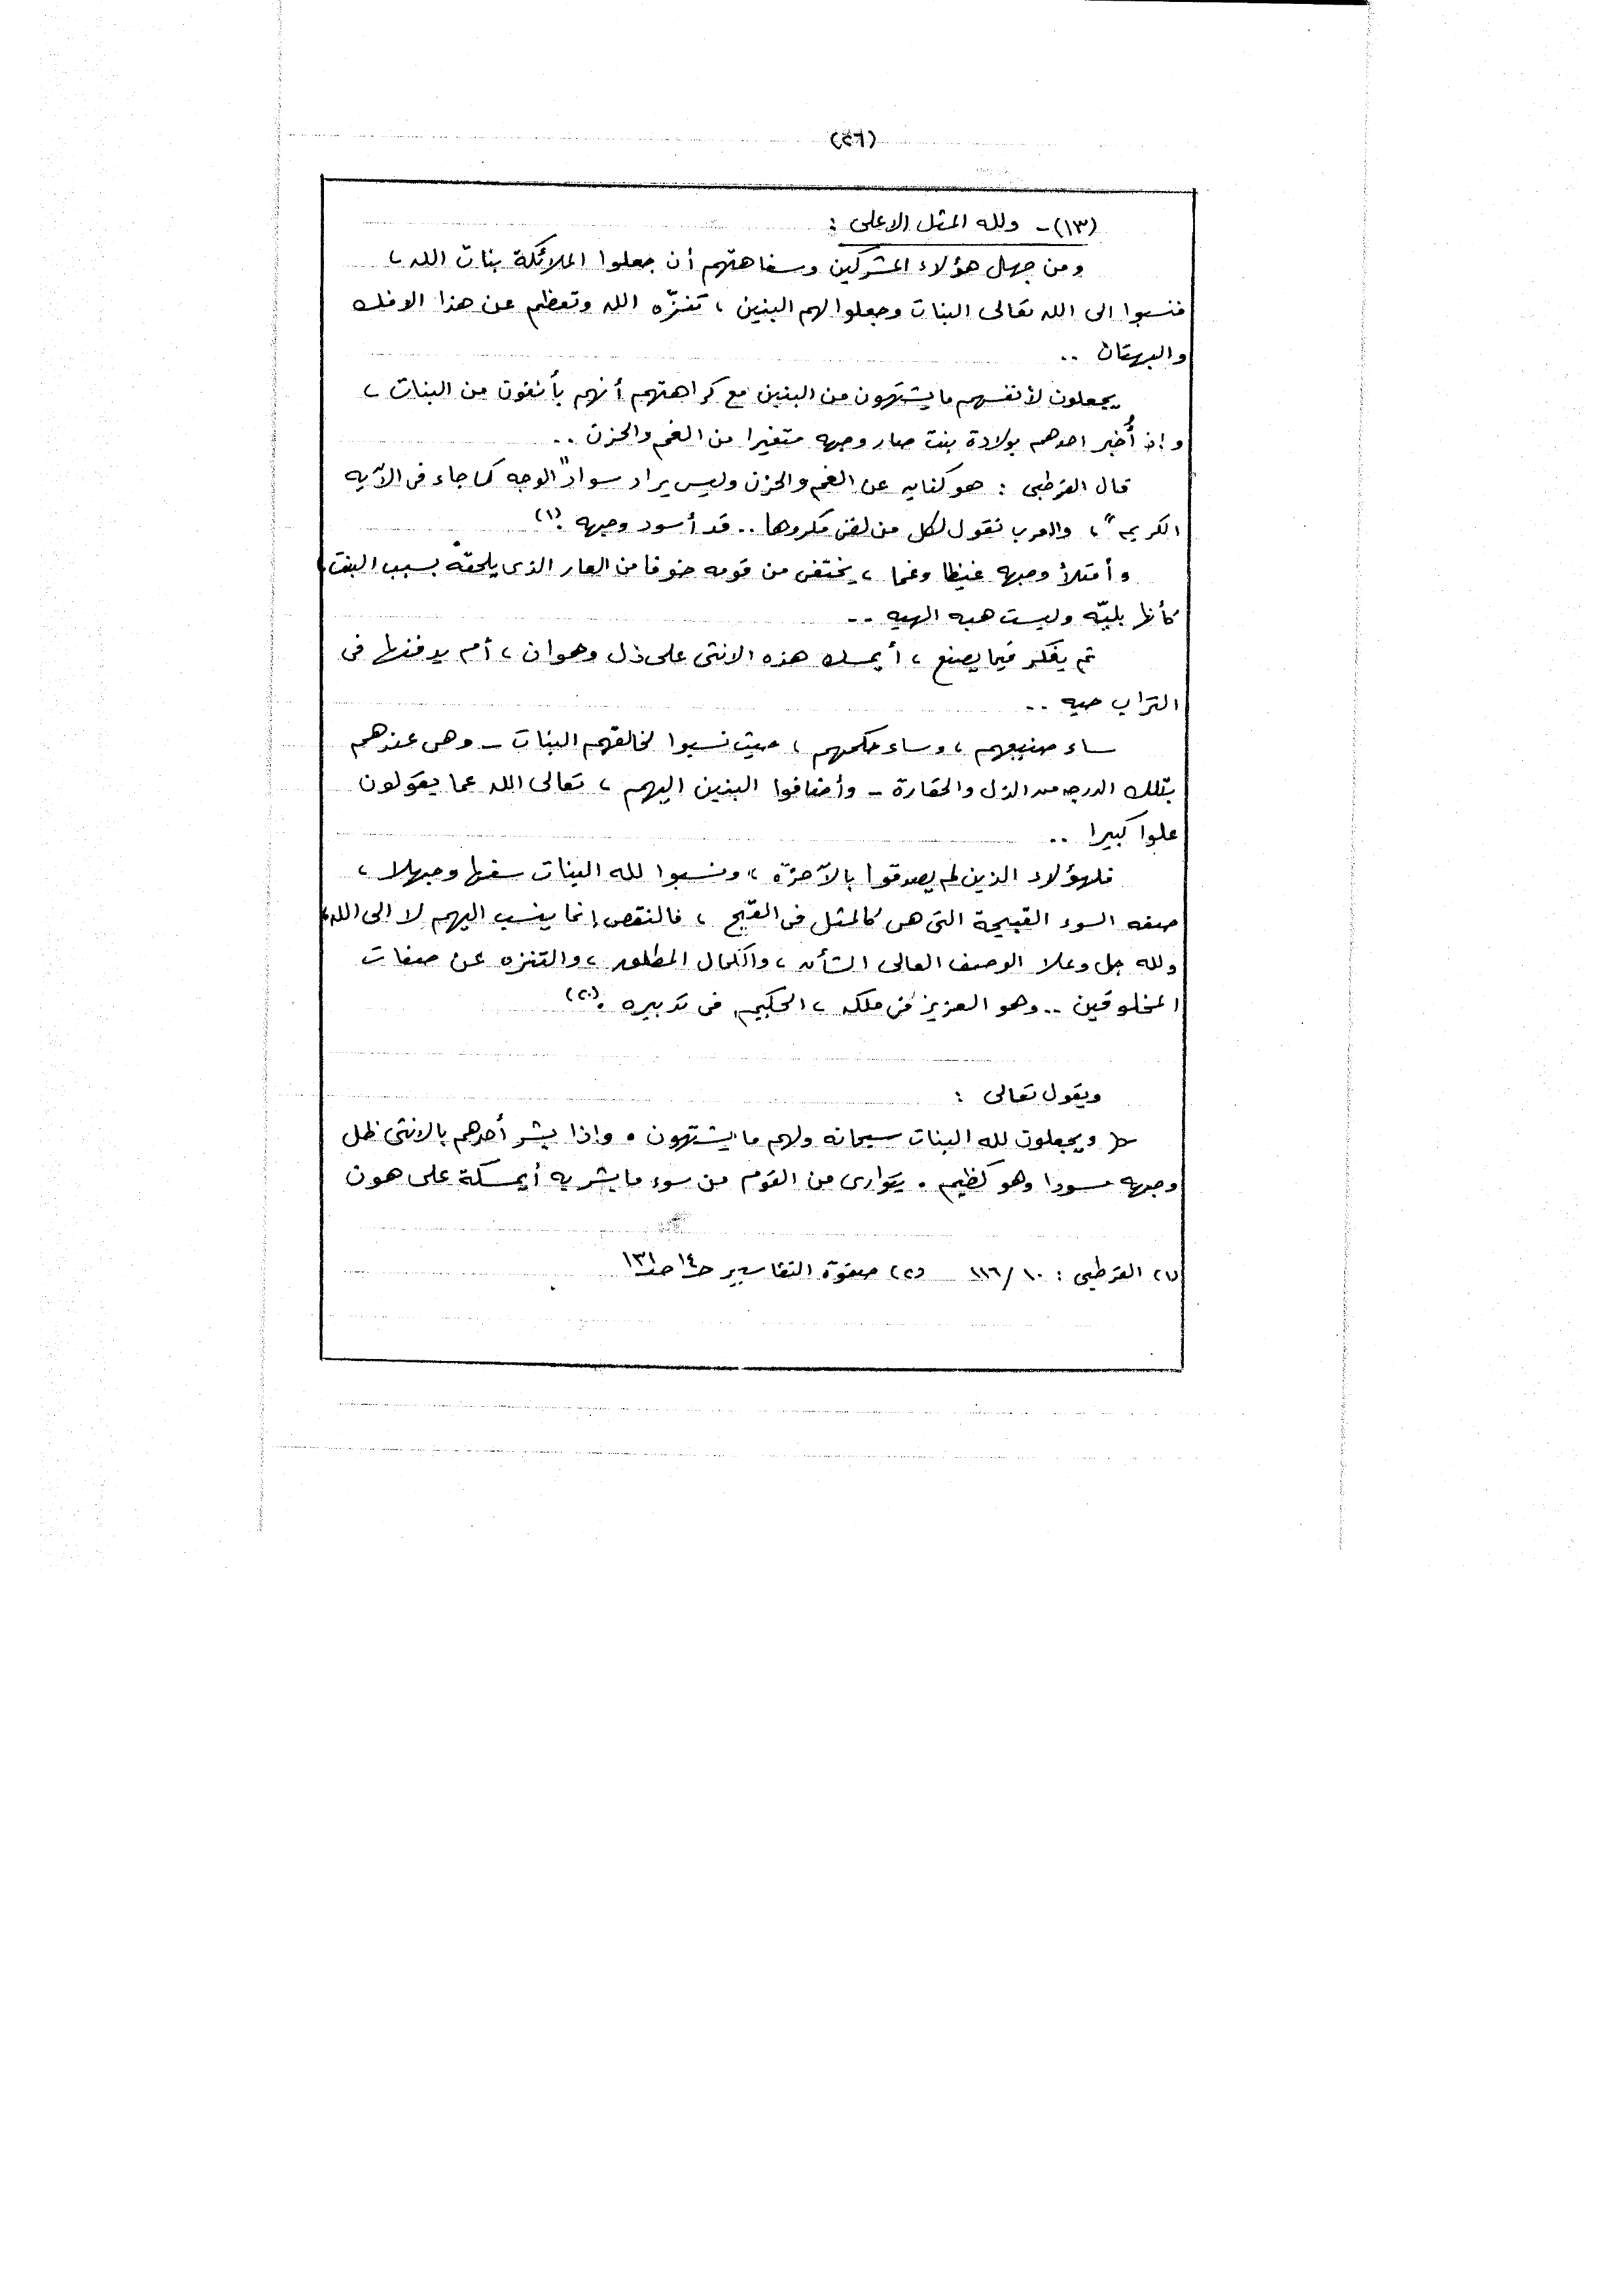 (٢٦)
(١٣) - ولله المثل الاعلى :
ومن جهل هؤلاء المشركين وسفاهتهم أن جعلوا الملائكة بنات الله ،
فنسبوا الى الله تعالى البنات وجعلوا لهم البنين ، تنزّه الله وتعظم عن هذا الافك
والبهتان ..
يجعلون لأنفسهم ما يشتهون من البنين مع كراهتهم أنهم يأنفون من البنات ،
وإذ أُخبر احدهم بولادة بنت صار وجهه متغيرا من الغم والحزن ..
قال القرطبى : هو كنايه عن الغم والحزن وليس يراد سواد "الوجه كما جاء فى الآيه
الكريمه " ، والعرب تقول لكل من لقى مكروها .. قد أسود وجهه . (١)
وأمتلأ وجهه غيظا وغما ، يختفى من قومه خوفا من العار الذى يلحقه بسبب البنت ،
كأنها بليّه وليست هبه الهيه ..
ثم يفكر فيما يصنع ، أيمسك هذه الانثى على ذل وهوان ، أم يدفنها فى
التراب حيه ..
ساء صنيعهم ، وساء حكمهم ، حيث نسبوا لخالقهم البنات - وهى عندهم
بتلك الدرجه من الذل والحقارة - وأضافوا البنين اليهم ، تعالى الله عما يقولون
علوا كبيرا ..
فلهؤلاء الذين لم يصدقوا بالآخرّه ، ونسبوا لله البنات سفها وجهلا ،
صفه السوء القبيحة التى هى كالمثل فى القبح ، فالنقص إنما ينسب اليهم لا الى الله ،
ولله جل وعلا الوصف العالى الشأن ، والكمال المطلق ، والتنزه عن صفات
المخلوقين .. وهو العزيز فى ملكه ، الحكيم فى تدبيره . (٢)
ويقول تعالى :
ويجعلون لله البنات سبحانه ولهم ما يشتهون . واذا بشر أحدهم بالانثى ظل
وجهه مسودا وهو كظيم . يتوارى من القوم من سوء ما بشر به أيمسكة على هون
(١) القرطبى : ١٠ / ١١٦ (٢) صفوة التفاسير حـ١٤ صـ١٣١